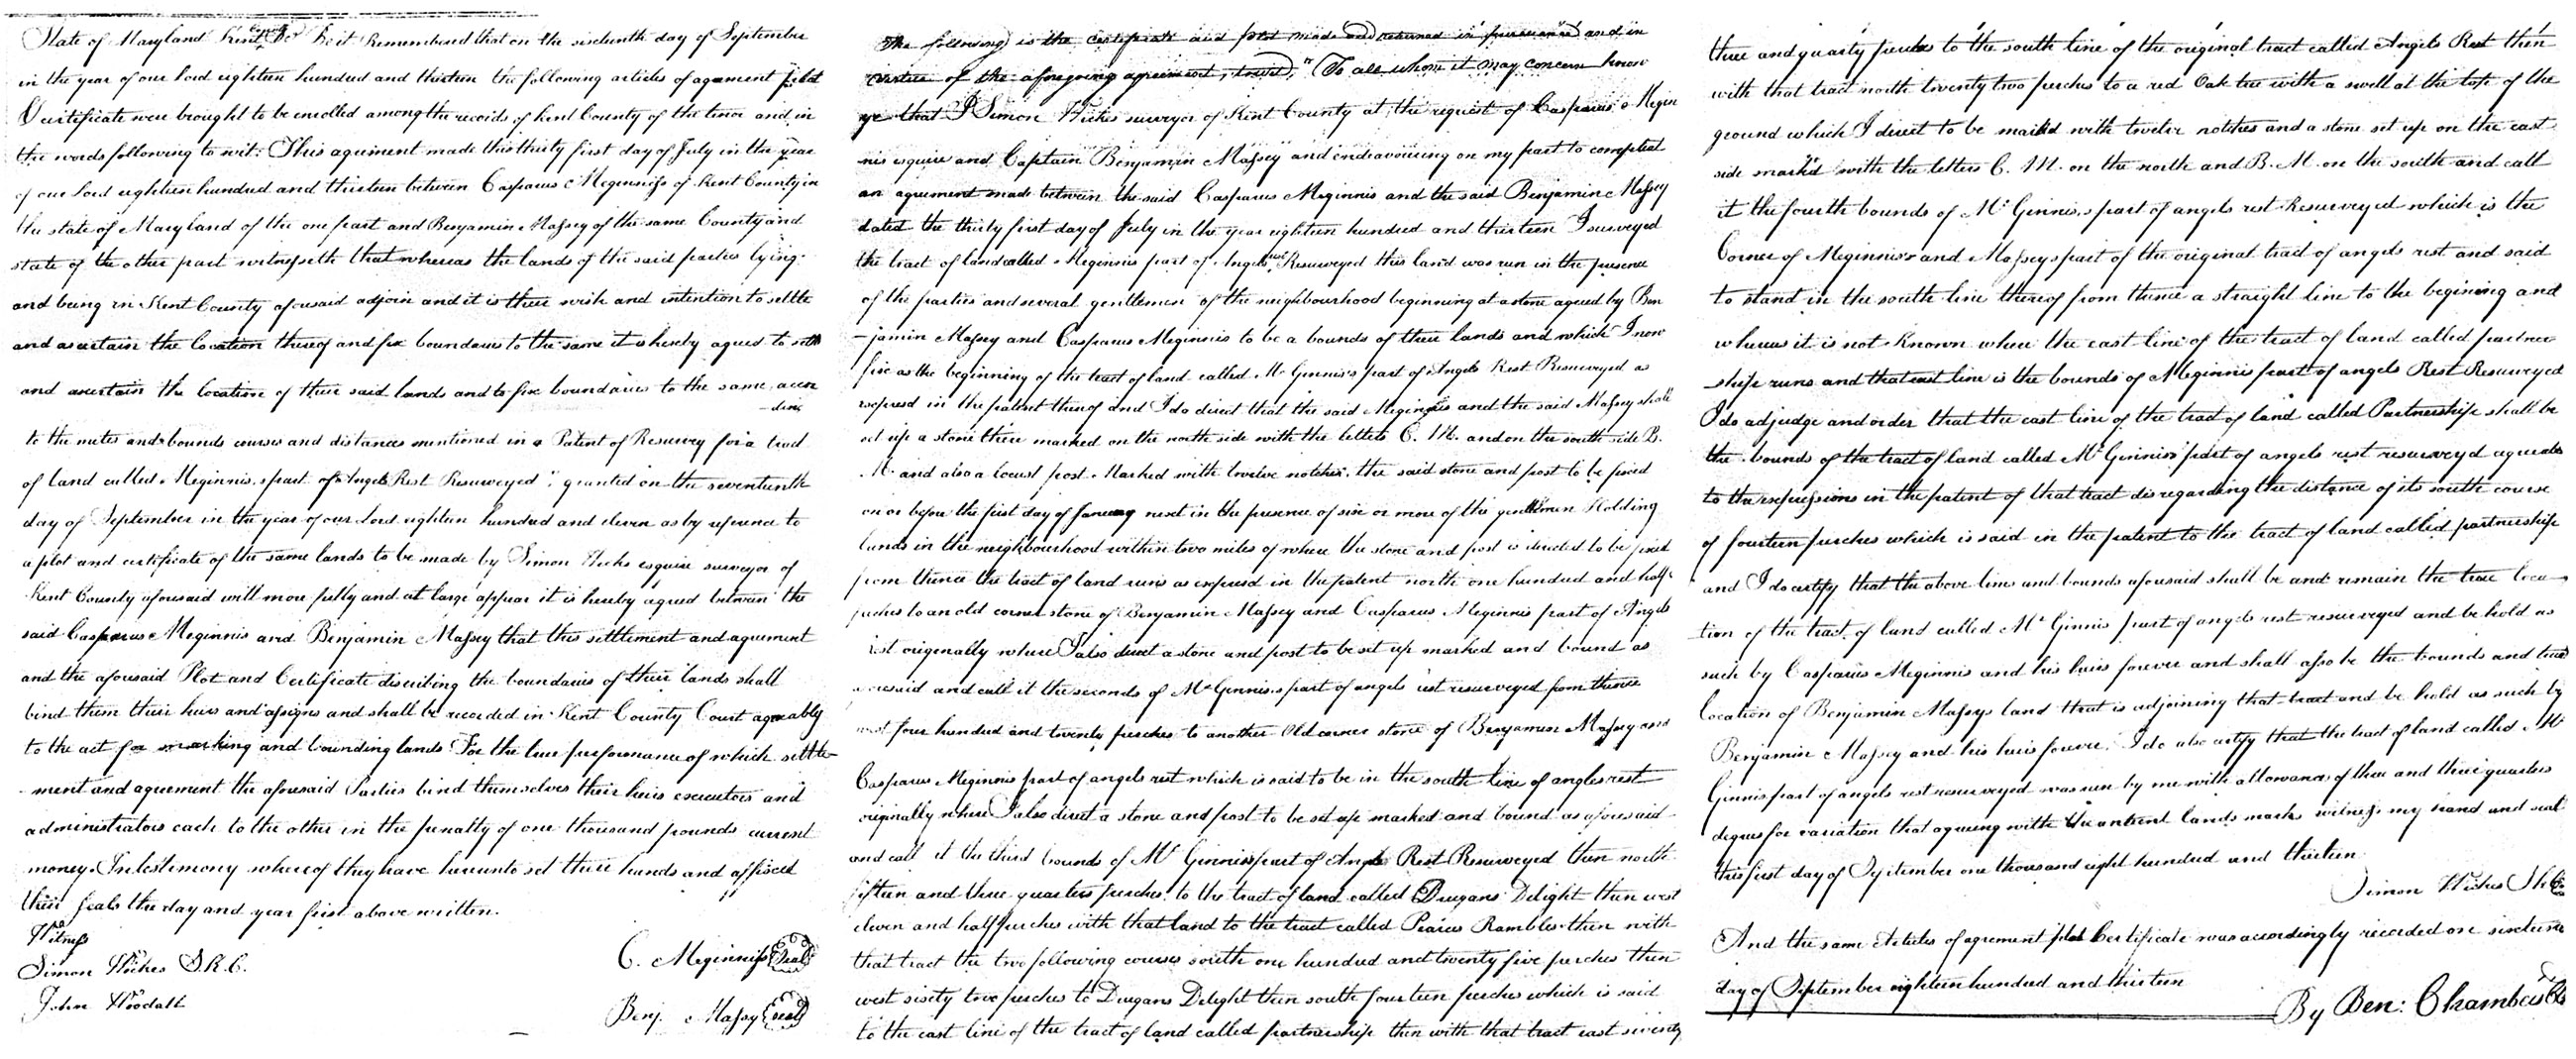 State of Maryland Kent County Sc Be it Remembered that on the sixteenth day of September
in the year of our lord eighteen hundred and thirteen the following articles of agement plot
& certificate were brought to be enrolled among the records of Kent County of the tenor and in
the words following to wit: This agreement made this thirty first day of July in the year
of our lord eighteen hundred and thirteen between Casparus Meginniss of Kent County in
the state of Maryland of the one part and Benjamin Massey of the same County and
state of the other part witnesseth that whereas the lands of the said parties lying
and being in Kent County aforesaid adjoin and it is their wish and intention to settle
and ascertain the location thereof and fix boundaries to the same it is hereby agreed to settle
and ascertain the location of their said lands and to fix boundaries to the same accor
-ding
to the metes and bounds courses and distances mentioned in a Patent of Resurvey for a tract
of land called Meginnis,s part of Angels Rest Resurveyed", granted on the seventeenth
day of September in the year of our Lord eighteen hundred and eleven as by reference to
a plot and certificate of the same lands to be made by Simon Wicks esquire surveyor of
Kent County aforesaid will more fully and at large appear it is hereby agreed between the
said Casparus Meginnis and Benjamin Massey that this settlement and agreement
and the aforesaid Plot and Certificate discribing the boundaries of their lands shall
bind them their heirs and assigns and shall be recorded in Kent County Court agreeably
to the act for marking and bounding lands For the true performance of which settle
ment and agreement the aforesaid Parties bind themselves their heirs executors and
administrators each to the other in the penalty of one thousand pounds current
money. In testimony whereof they have hereunto set their hands and affixed
their seals the day and year first above written.
Witness
Simon Wickes S.K.C. C. Meginniss Seal
John Woodall Benj. Massey Seal
The following is the certificate and plot made and returned in pursuance and in
virtue of the aforegoing agreement, to wit, "To all whom it may concern know
ye that I Simon Wickes surveyor of Kent County at the request of Casparus Megin
nis esquire and Captain Benjamin Massey and endeavouring on my part to compleat
an agreement made between the said Casparus Meginnis and the said Benjamin Massey
dated the thirty first day of July in the year eighteen hundred and thirteen I surveyed
the tract of land called Meginnis part of Angels rest Resurveyed this land was run in the presence
of the parties and several gentlemen of the neighbourhood beginning at a stone agreed by Ben
-jamin Massey and Casparus Meginnis to be a bounds of their lands and which I now
fix as the beginning of the tract of land called Mc Ginnis's part of Angels Rest Resurveyed as
expressd in the patent thereof and I do direct that the said Meginnis and the said Massey shall
set up a stone there marked on the north side with the letters C. M. and on the south side B.
M. and also a locust post Marked with twelve notches. the said stone and post to be fixed
on or before the first day of January next in the presence of six or more of the gentlemen Holding
lands in the neighbourhood within two miles of where the stone and post is directed to be fixed
from thence the tract of land runs as expressd in the patent north one hundred and half
perches to an old corner stone of Benjamin Massey and Casparus Meginnis part of Angels
rest originally where I also direct a stone and post to be set up marked and bound as
aforesaid and call it the seconds of Mc Ginnis,s part of angels rest resurveyed from thence
west four hundred and twenty perches to another Old corner stone of Benjamin Massey and
Casparus Meginnis part of angels rest which is said to be in the south line of angles rest
originally where I also direct a stone and post to be set up marked and bound as aforesaid
and call it the third bounds of Mc Ginnis's part of Angels Rest Resurveyed then north
fifteen and three quarters perches to the tract of land called Dugans Delight then west
eleven and half perches with that land to the tract called Pearces Rambles then with
that tract the two following courses south one hundred and twenty five perches then
west sixty two perches to Dugans Delight then south fourteen perches which is said
to the east line of the tract of land called partnership then with that tract east seventy
three and quarty perches to the south line of the original tract called Angels Rest then
with that tract north twenty two perches to a red Oak tree with a swell at the top of the
ground which I direct to be markd with twelve notches and a stone set up on the east
side marked with the letters C. M. on the north and B. M. on the south and call
it the fourth bounds of Mc Ginnis,s part of angels rest Resurveyed which is the
Corner of Meginnis's and Massey,s part of the original tract of angels rest and said
to stand in the south line thereof from thence a straight line to the begining and
whereas it is not Known where the east line of the tract of land called partner
-ship runs and that east line is the bounds of Meginnis part of angels Rest Resurveyed
I do adjudge and order that the east line of the tract of land called Partnership shall be
the bounds of the tract of land called Mc Ginnis's part of angels rest resurveyd agreeable
to the expressions in the patent of that tract disregarding the distance of its south course
of fourteen perches which is said in the patent to the tract of land called partnership
and I do certify that the above lines and bounds aforesaid shall be and remain the true loca
tion of the tract of land called Mc Ginnis part of angels rest resurveyed and be hold as
such by Casparus Meginnis and his heirs forever and shall also be the bounds and true
location of Benjamin Masseys land that is adjoining that tract and be hold as such by
Benjamin Massey and his heirs forever. I do also certify that the tract of land called Mc
Ginnis part of angels rest resurveyed was run by me with allowance of three and three quarters
degrees for variation that agreeing with the antient lands marks witness my hand and seal
this first day of September one thousand eight hundred and thirteen
Simon Wickes S.K.C.
And the same Articles of agreement plot & certificate was accordingly recorded on sixteenth
day of September eighteen hundred and thirteen
By Ben: Chambers Clk